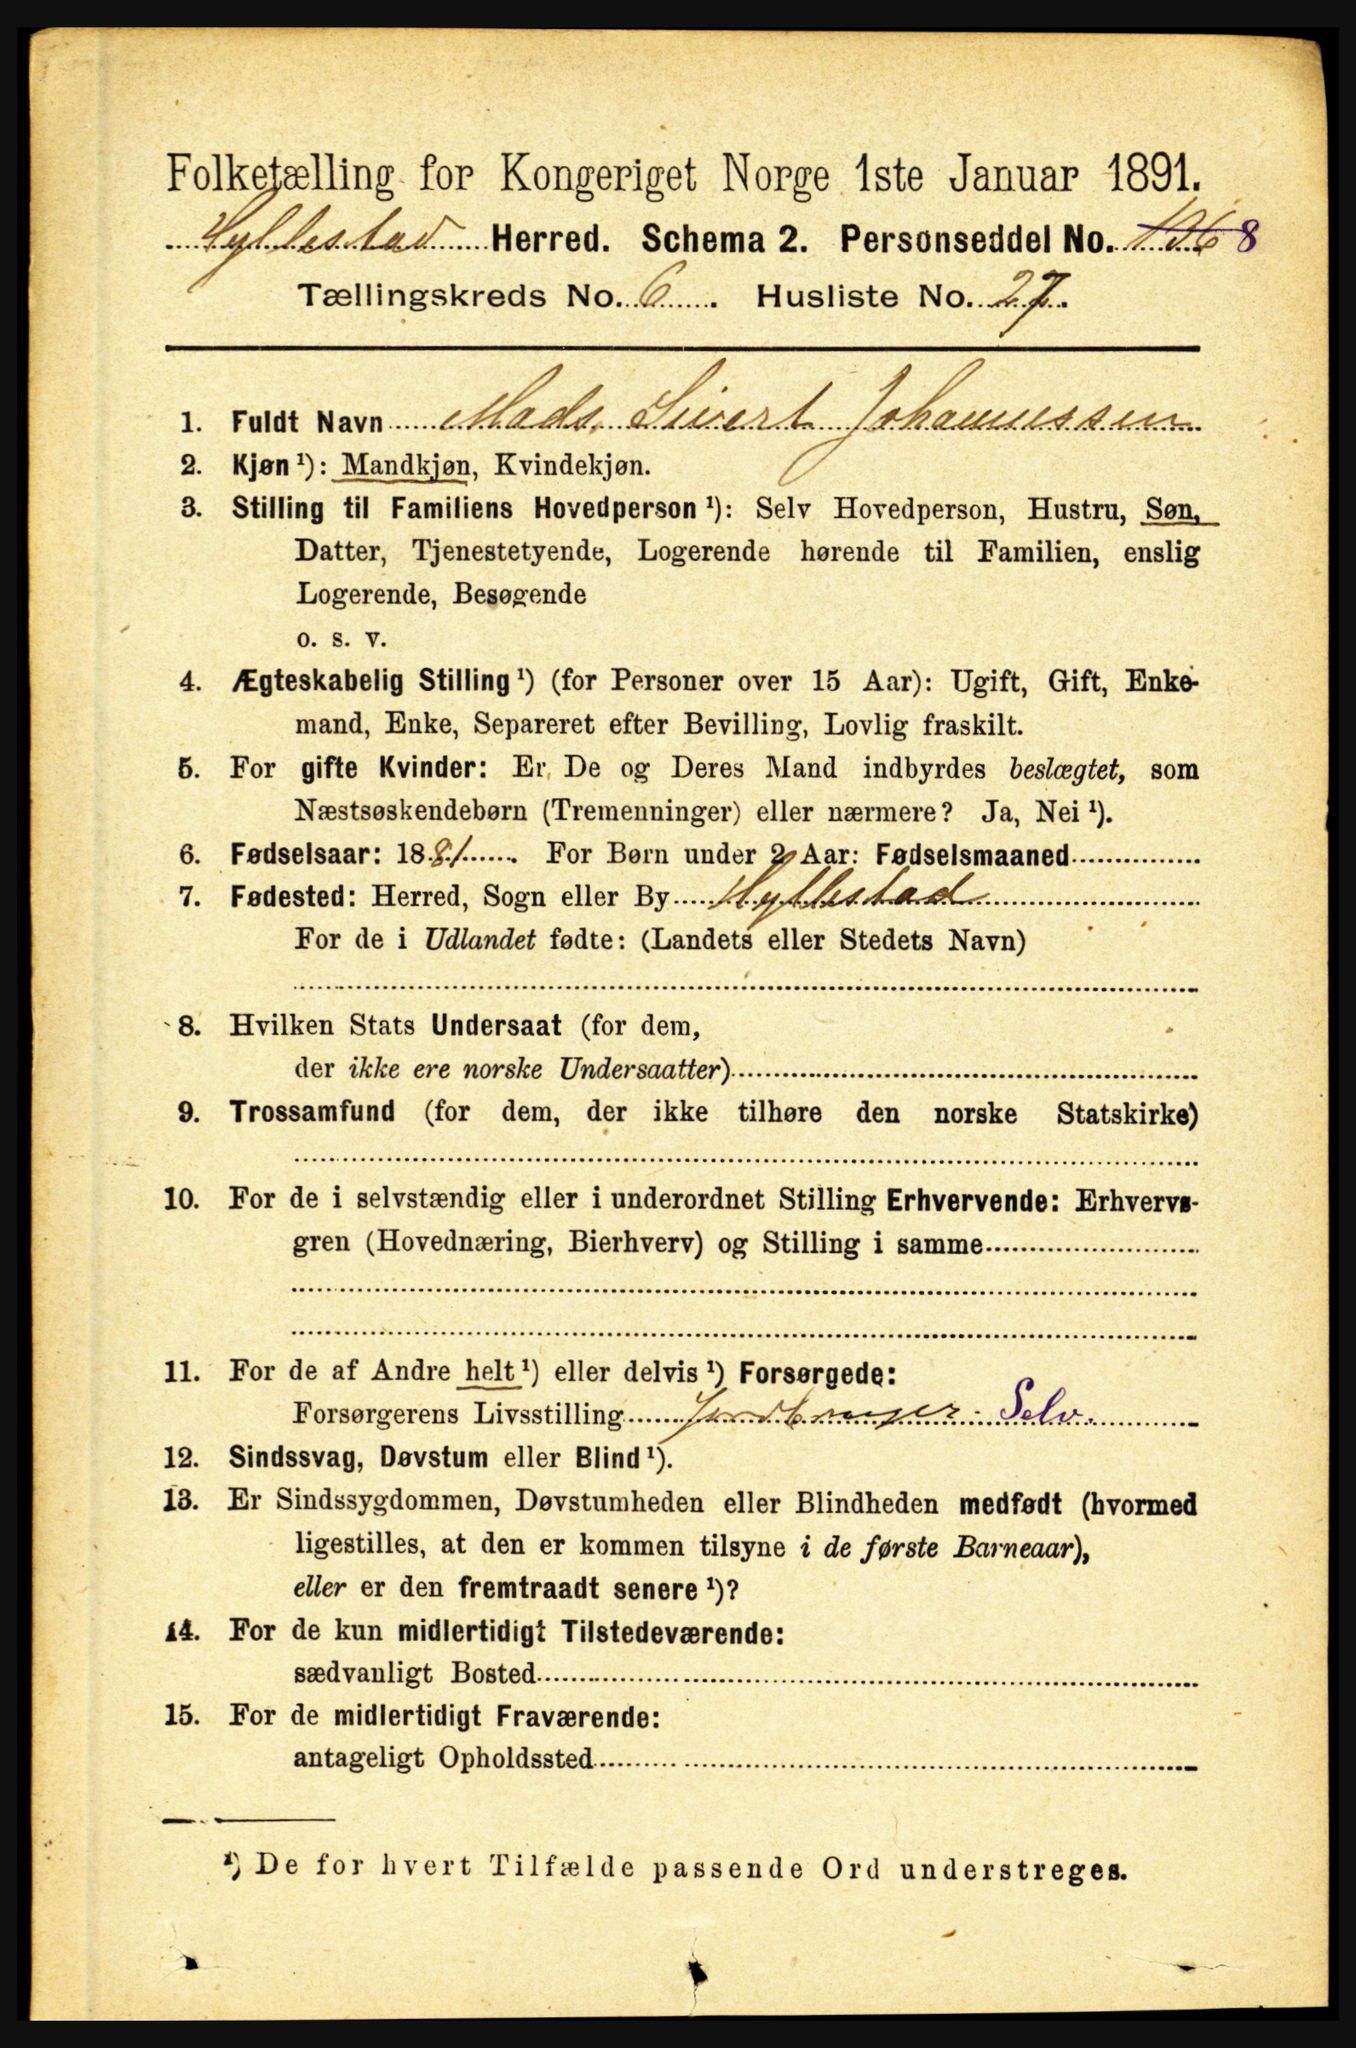 Folketælling for Kongeriget Norge 1ste Januar 1891.
Hyllestad Herred. Schema 2. Personseddel No. 8
Tællingskreds No. 6. Husliste No. 27.
1. Fuldt Navn Mads Sivert Johannessen
2. Kjøn ¹): Mandkjøn, Kvindekjøn.
3. Stilling til Familiens Hovedperson ¹): Selv Hovedperson, Hustru, Søn,
Datter, Tjenestetyende, Logerende hørende til Familien, enslig
Logerende, Besøgende
o. s. v.
4. Ægteskabelig Stilling ¹) (for Personer over 15 Aar): Ugift, Gift, Enke-
mand, Enke, Separeret efter Bevilling, Lovlig fraskilt.
5. For gifte Kvinder: Er De og Deres Mand indbyrdes beslægtet, som
Næstsøskendebørn (Tremenninger) eller nærmere? Ja, Nei ¹).
6. Fødselsaar: 1881. For Børn under 2 Aar: Fødselsmaaned
7. Fødested: Herred, Sogn eller By Hyllestad
For de i Udlandet fødte: (Landets eller Stedets Navn)
8. Hvilken Stats Undersaat (for dem,
der ikke ere norske Undersaatter)
9. Trossamfund (for dem, der ikke tilhøre den norske Statskirke)
10. For de i selvstændig eller i underordnet Stilling Erhvervende: Erhvervs-
gren (Hovednæring, Bierhverv) og Stilling i samme
11. For de af Andre helt ¹) eller delvis ¹) Forsørgede:
Forsørgerens Livsstilling Jordbruger Selv.
12. Sindssvag, Døvstum eller Blind ¹).
13. Er Sindssygdommen, Døvstumheden eller Blindheden medfødt (hvormed
ligestilles, at den er kommen tilsyne i de første Barneaar),
eller er den fremtraadt senere ¹)?
14. For de kun midlertidigt Tilstedeværende:
sædvanligt Bosted
15. For de midlertidigt Fraværende:
antageligt Opholdssted
¹) De for hvert Tilfælde passende Ord understreges.